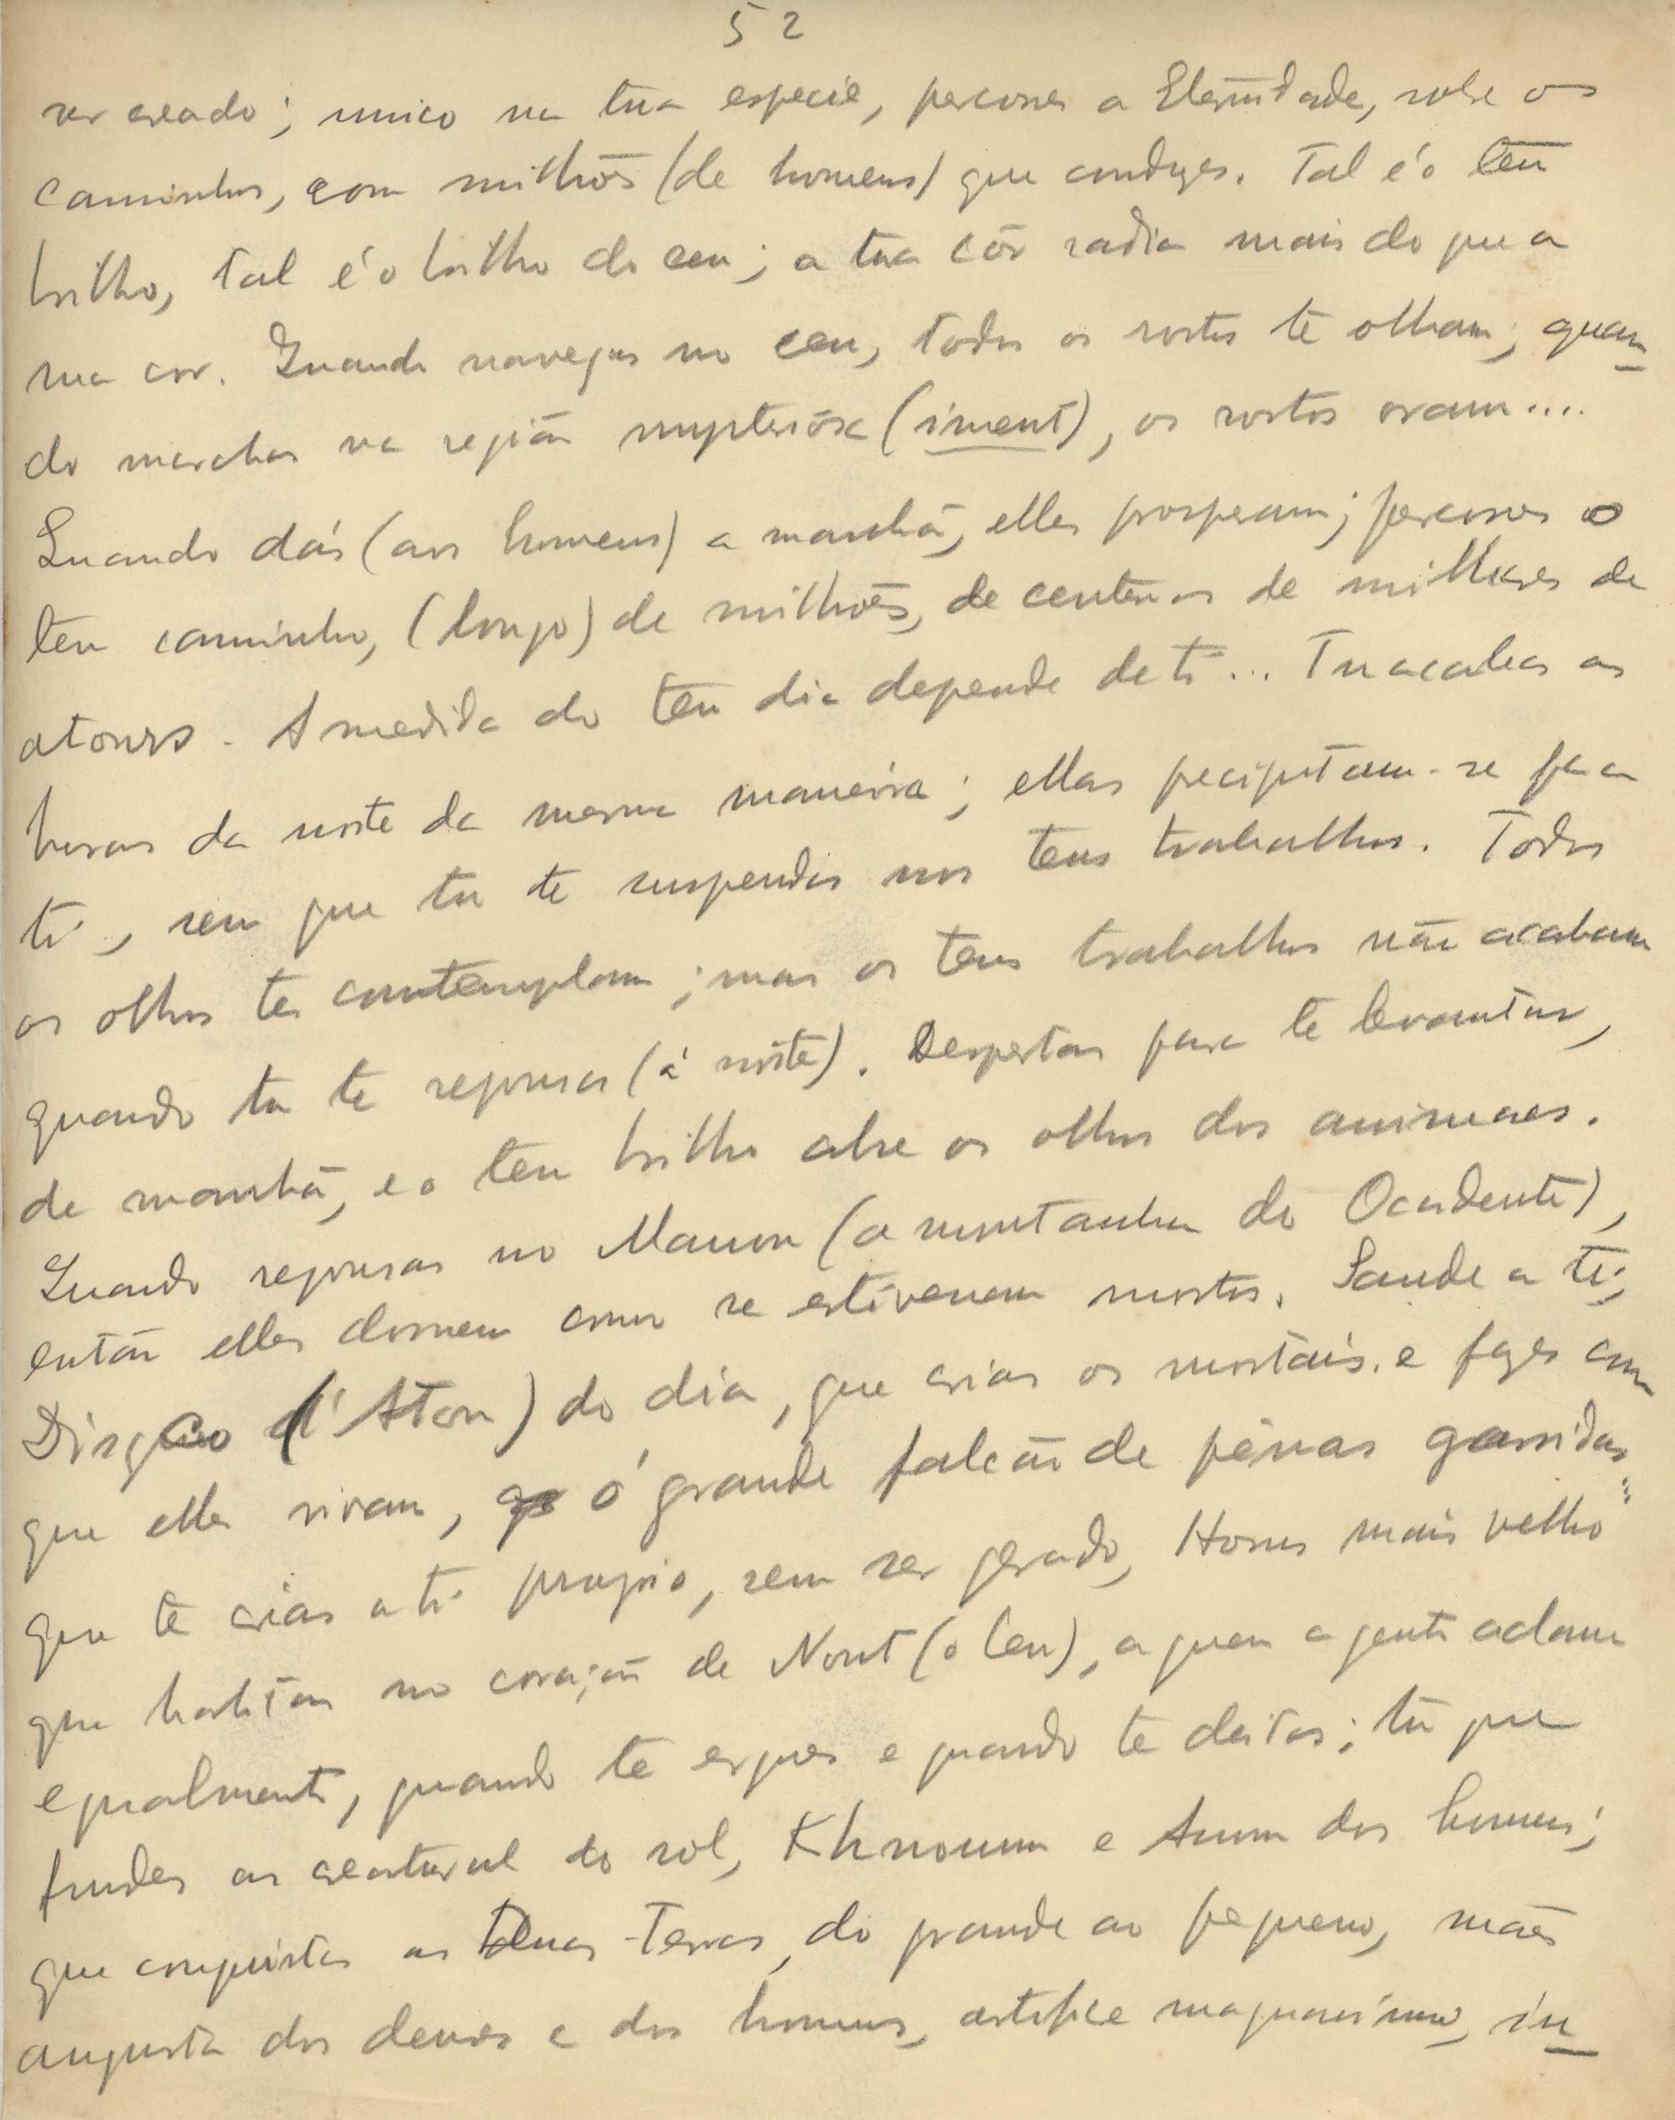 52
ser creado; unico na tua especie, percorres a Eternidade, sobre os
caminhos, com milhões (de homens) que conduzes. Tal é o teu
brilho, tal é o brilho do ceu; a tua côr radia mais do que a
sua cor. Quando navegas no ceu, todos os rostos te olham; quan
do marchas na região mysteriosa (iment), os rostos oram....
Quando dás (aos homens) a manhã, elles prosperam; percorres o
teu caminho, (longo) de milhões, de centenas de milhares de
atours. A medida do teu dia depende de ti... Tu acabas as
horas da noite da mesma maneira; ellas precipitam-se para
ti, sem que tu te suspendas nos teus trabalhos. Todos
os olhos te contemplam; mas os teus trabalhos não acabam
quando tu te repousas (á noite). Despertas para te levantar,
de manhã, e o teu brilho abre os olhos dos animaes.
Quando repousas no Manou (a montanha do Occidente),
então elles dormem como se estivessem mortos. Saude a ti,
Disco (d'Aton) do dia, que crias os mortais, e fazes com
que elles vivam, ó grande falcão de pênas garridas...
que te crias a ti proprio, sem ser gerado, Horus mais velho
que habitas no coração de Nout (o Ceu), a quem a gente aclama
egualmente, quando te ergues e quando te deitas; tu que
fundes as creaturas do sol, Khnoum e Amon dos homens;
que conquistas as Duas-Terras, do grande ao pequeno, mães
augusta dos deuses e dos homens, artifice magnanimo, in